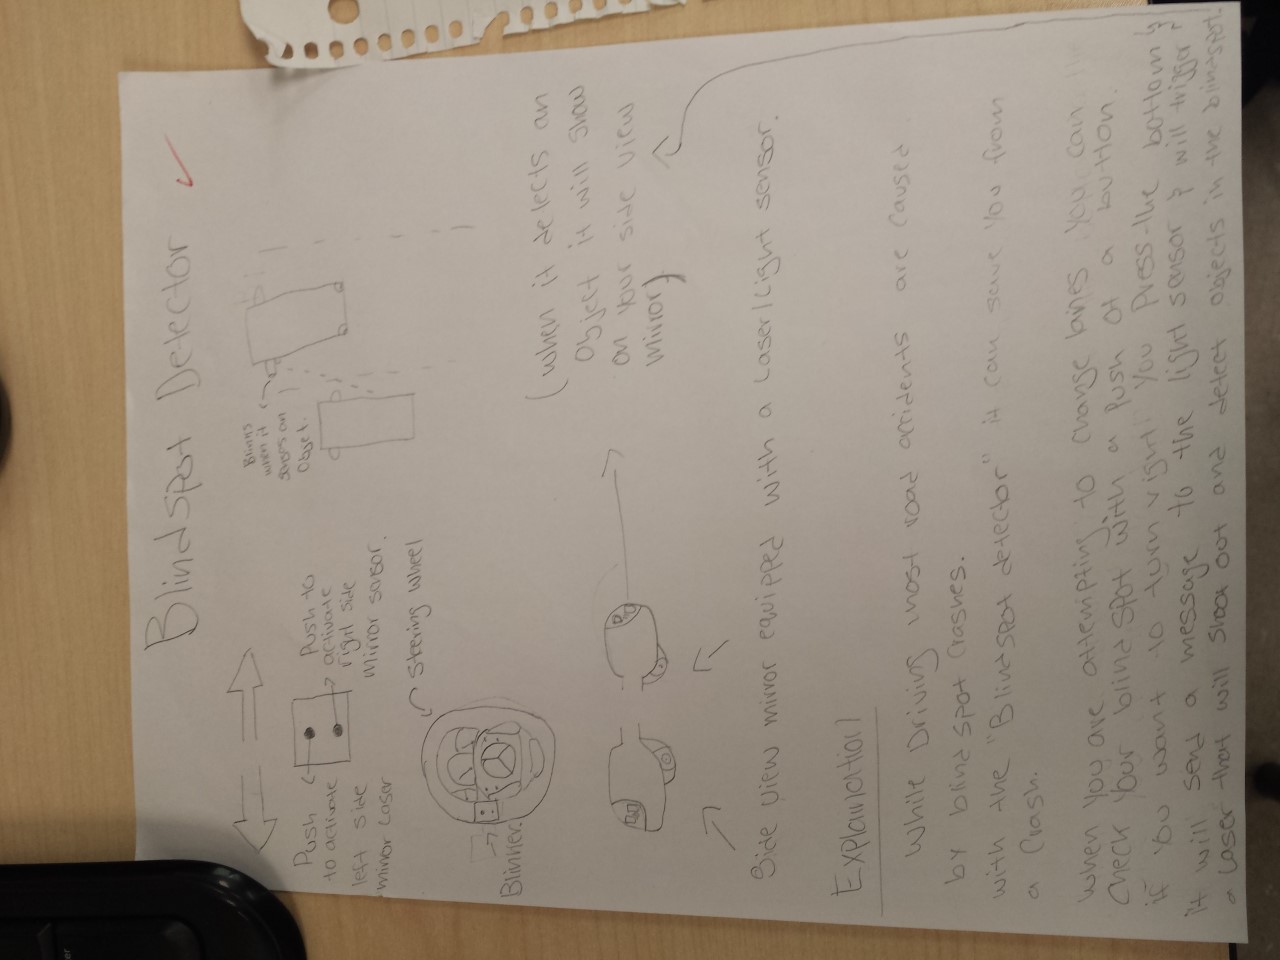 Blindspot Detector
Push
to activate
left side
mirror laser
Push to
activate
right side
mirror sensor.
Blinks
when it
senses an
Object.
Stering wheel
Blinker.
(when it detects an
Object it will show
on your side view
mirror)
Side view mirror equipped with a Laser/Light sensor.
Explanation
While Driving most road accidents are caused
by blind spot crashes.
with the "Blindspot detector" it can save you from
a crash.
when you are attempting to change lanes you can
check your blind spot with a push of a button.
if you want to turn right you press the bottom &
it will send a message to the light sensor & will trigger
a Laser that will shoot out and detect objects in the blindspot.